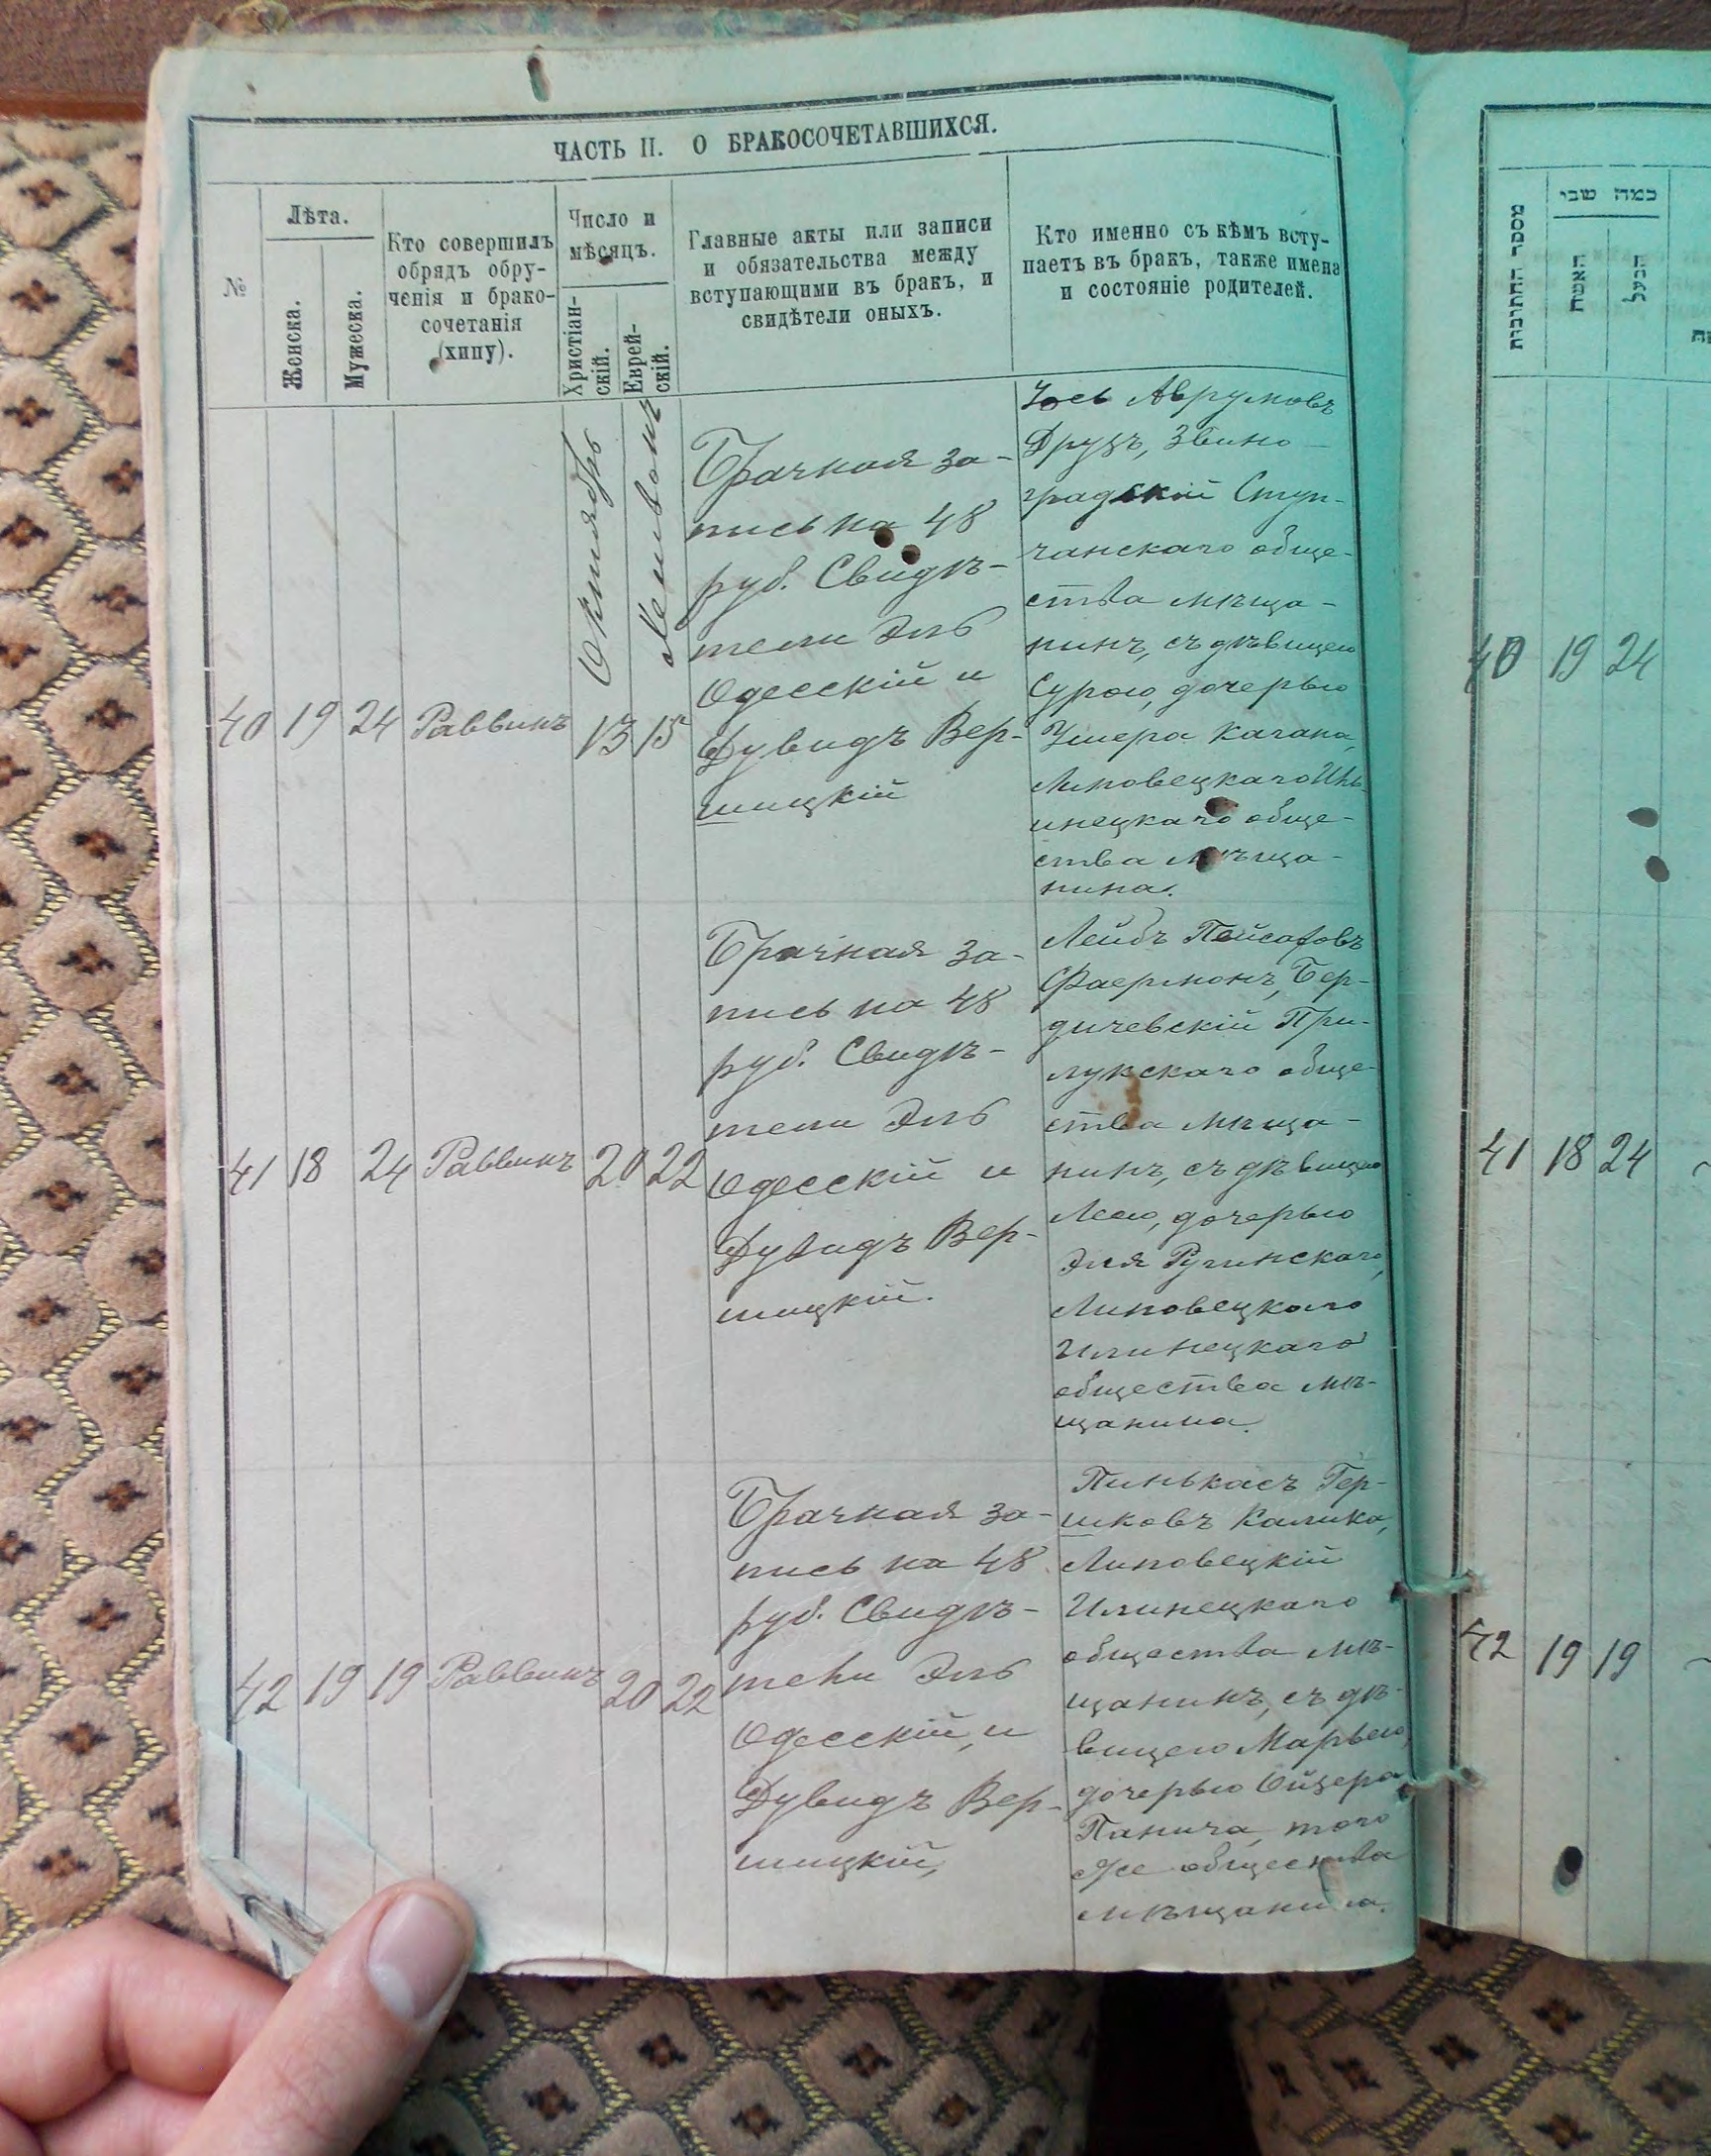 ЧАСТЬ II. О БРАКОСОЧЕТАВШИХСЯ.
№
Лѣта.
Женска.
Мужеска.
Кто совершилъ
обрядъ обру-
ченія и брако-
сочетанія
(хипу).
Число и
мѣсяцъ.
Христіан-
скій.
Еврей-
скій.
Главные акты или записи
и обязательства между
вступающими въ бракъ, и
свидѣтели оныхъ.
Кто именно съ кѣмъ всту-
паетъ въ бракъ, также имена
и состояніе родителей.
40 19 24 Раввинъ
Октябрь
13
15
Брачная за-
пись на 48
руб. Свидѣ-
тели Эль
Одесскій и
Дувидъ Вер-
шицкій
Іось Аврумовъ
Друзъ, Звино-
градскій Ступ-
чанскаго обще-
ства мѣща-
нинъ, съ дѣвицею
Сурою, дочерью
Ушера Кагана,
Липовецкаго Иль-
инецкаго обще-
ства мѣща-
нина.
41 18 24 Раввинъ 20 22
Брачная за-
пись на 48
руб. Свидѣ-
тели Эль
Одесскій и
Дувидъ Вер-
шицкій.
Лейбъ Пейсаховъ
Фаермонъ, Бер-
дичевскій При-
лукскаго обще-
ства мѣща-
нинъ, съ дѣвицею
Леею, дочерью
Эля Ружинскаго,
Липовецкаго
Илинецкаго
общества мѣ-
щанина.
42 19 19 Раввинъ 20 22
Брачная за-
пись на 48
руб. Свидѣ-
тели Эль
Одесскій, и
Дувидъ Вер-
шицкій,
Пинькасъ Гер-
шковъ Калика,
Липовецкій
Илинецкаго
общества мѣ-
щанинъ, съ дѣ-
вицею Марьею,
дочерью Ойзера
Панича, того
же общества
мѣщанина.
מספר החתונות
כמה שני
האשה
הבעל
40 19 24
41 18 24
42 19 19